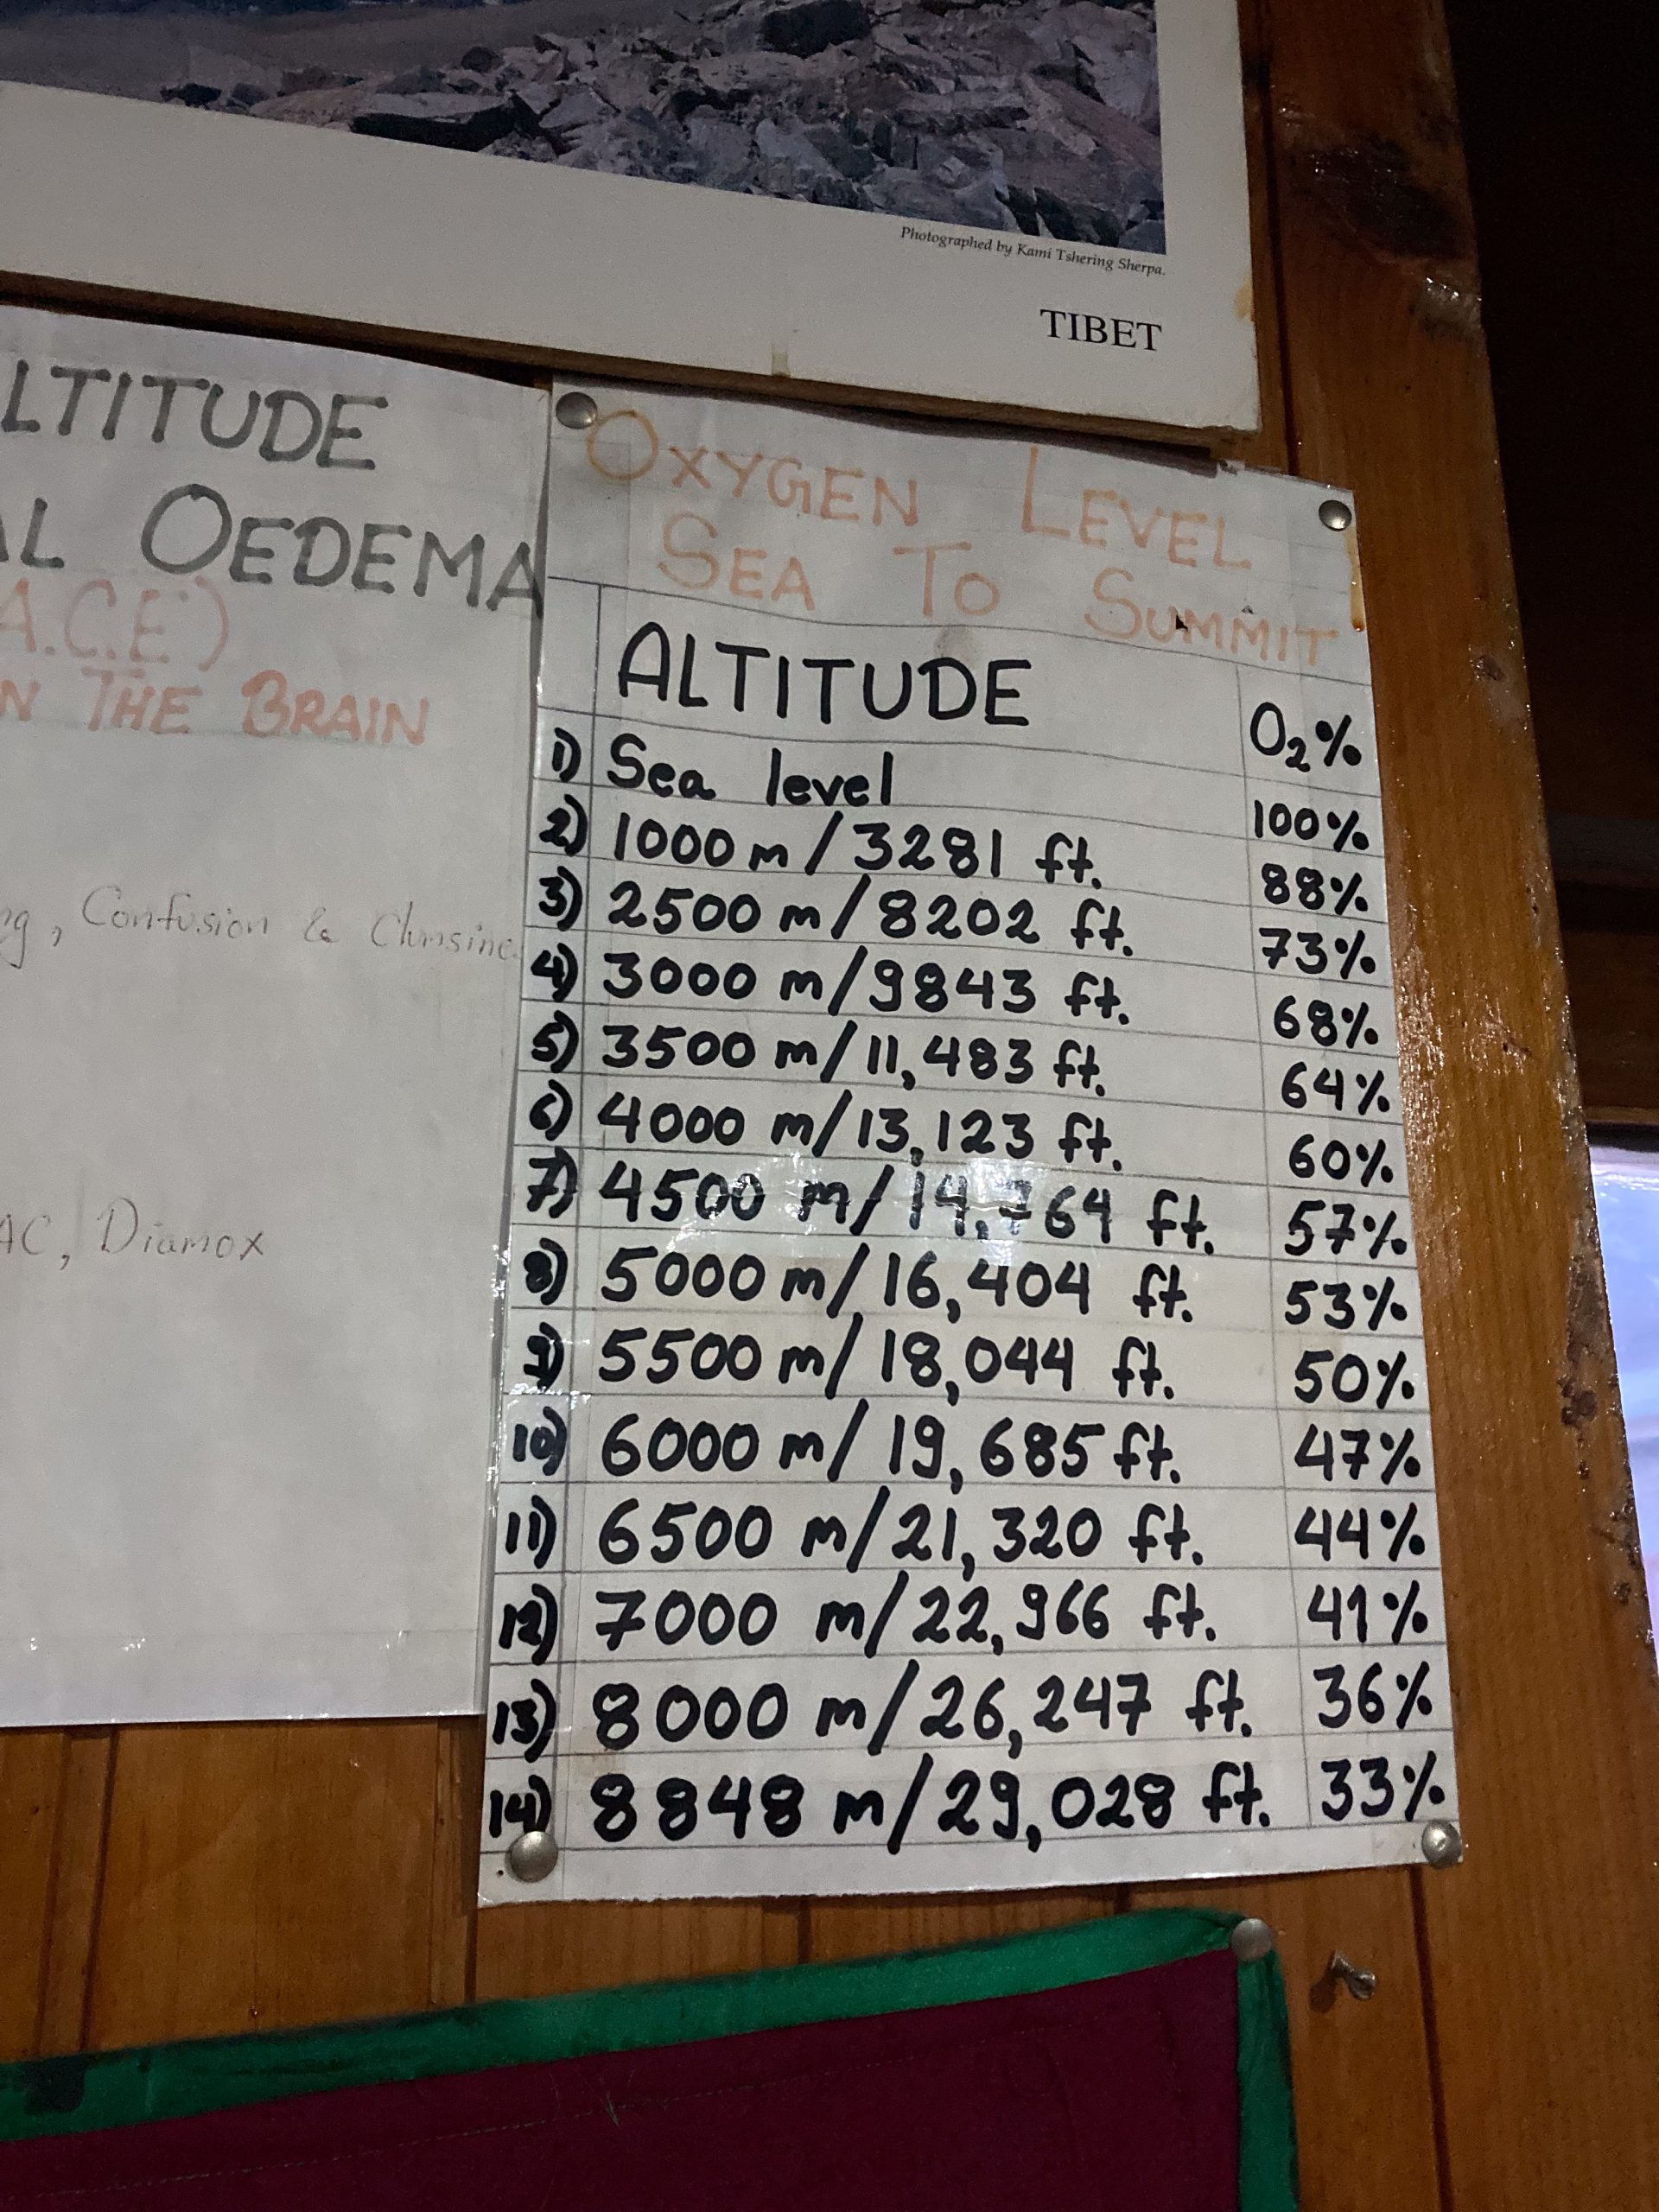 Photographed by Kami Tshering Sherpa.
TIBET
LTITUDE
AL OEDEMA
A.C.E)
N THE BRAIN
ng, Confusion & Clumsine
AC, Diamox
OXYGEN LEVEL
SEA TO SUMMIT
ALTITUDE O₂%
1) Sea level 100%
2) 1000 m/3281 ft. 88%
3) 2500 m/8202 ft. 73%
4) 3000 m/9843 ft. 68%
5) 3500 m/11,483 ft. 64%
6) 4000 m/13,123 ft. 60%
7) 4500 m/14,764 ft. 57%
8) 5000 m/16,404 ft. 53%
9) 5500 m/18,044 ft. 50%
10) 6000 m/19,685 ft. 47%
11) 6500 m/21,320 ft. 44%
12) 7000 m/22,966 ft. 41%
13) 8000 m/26,247 ft. 36%
14) 8848 m/29,028 ft. 33%